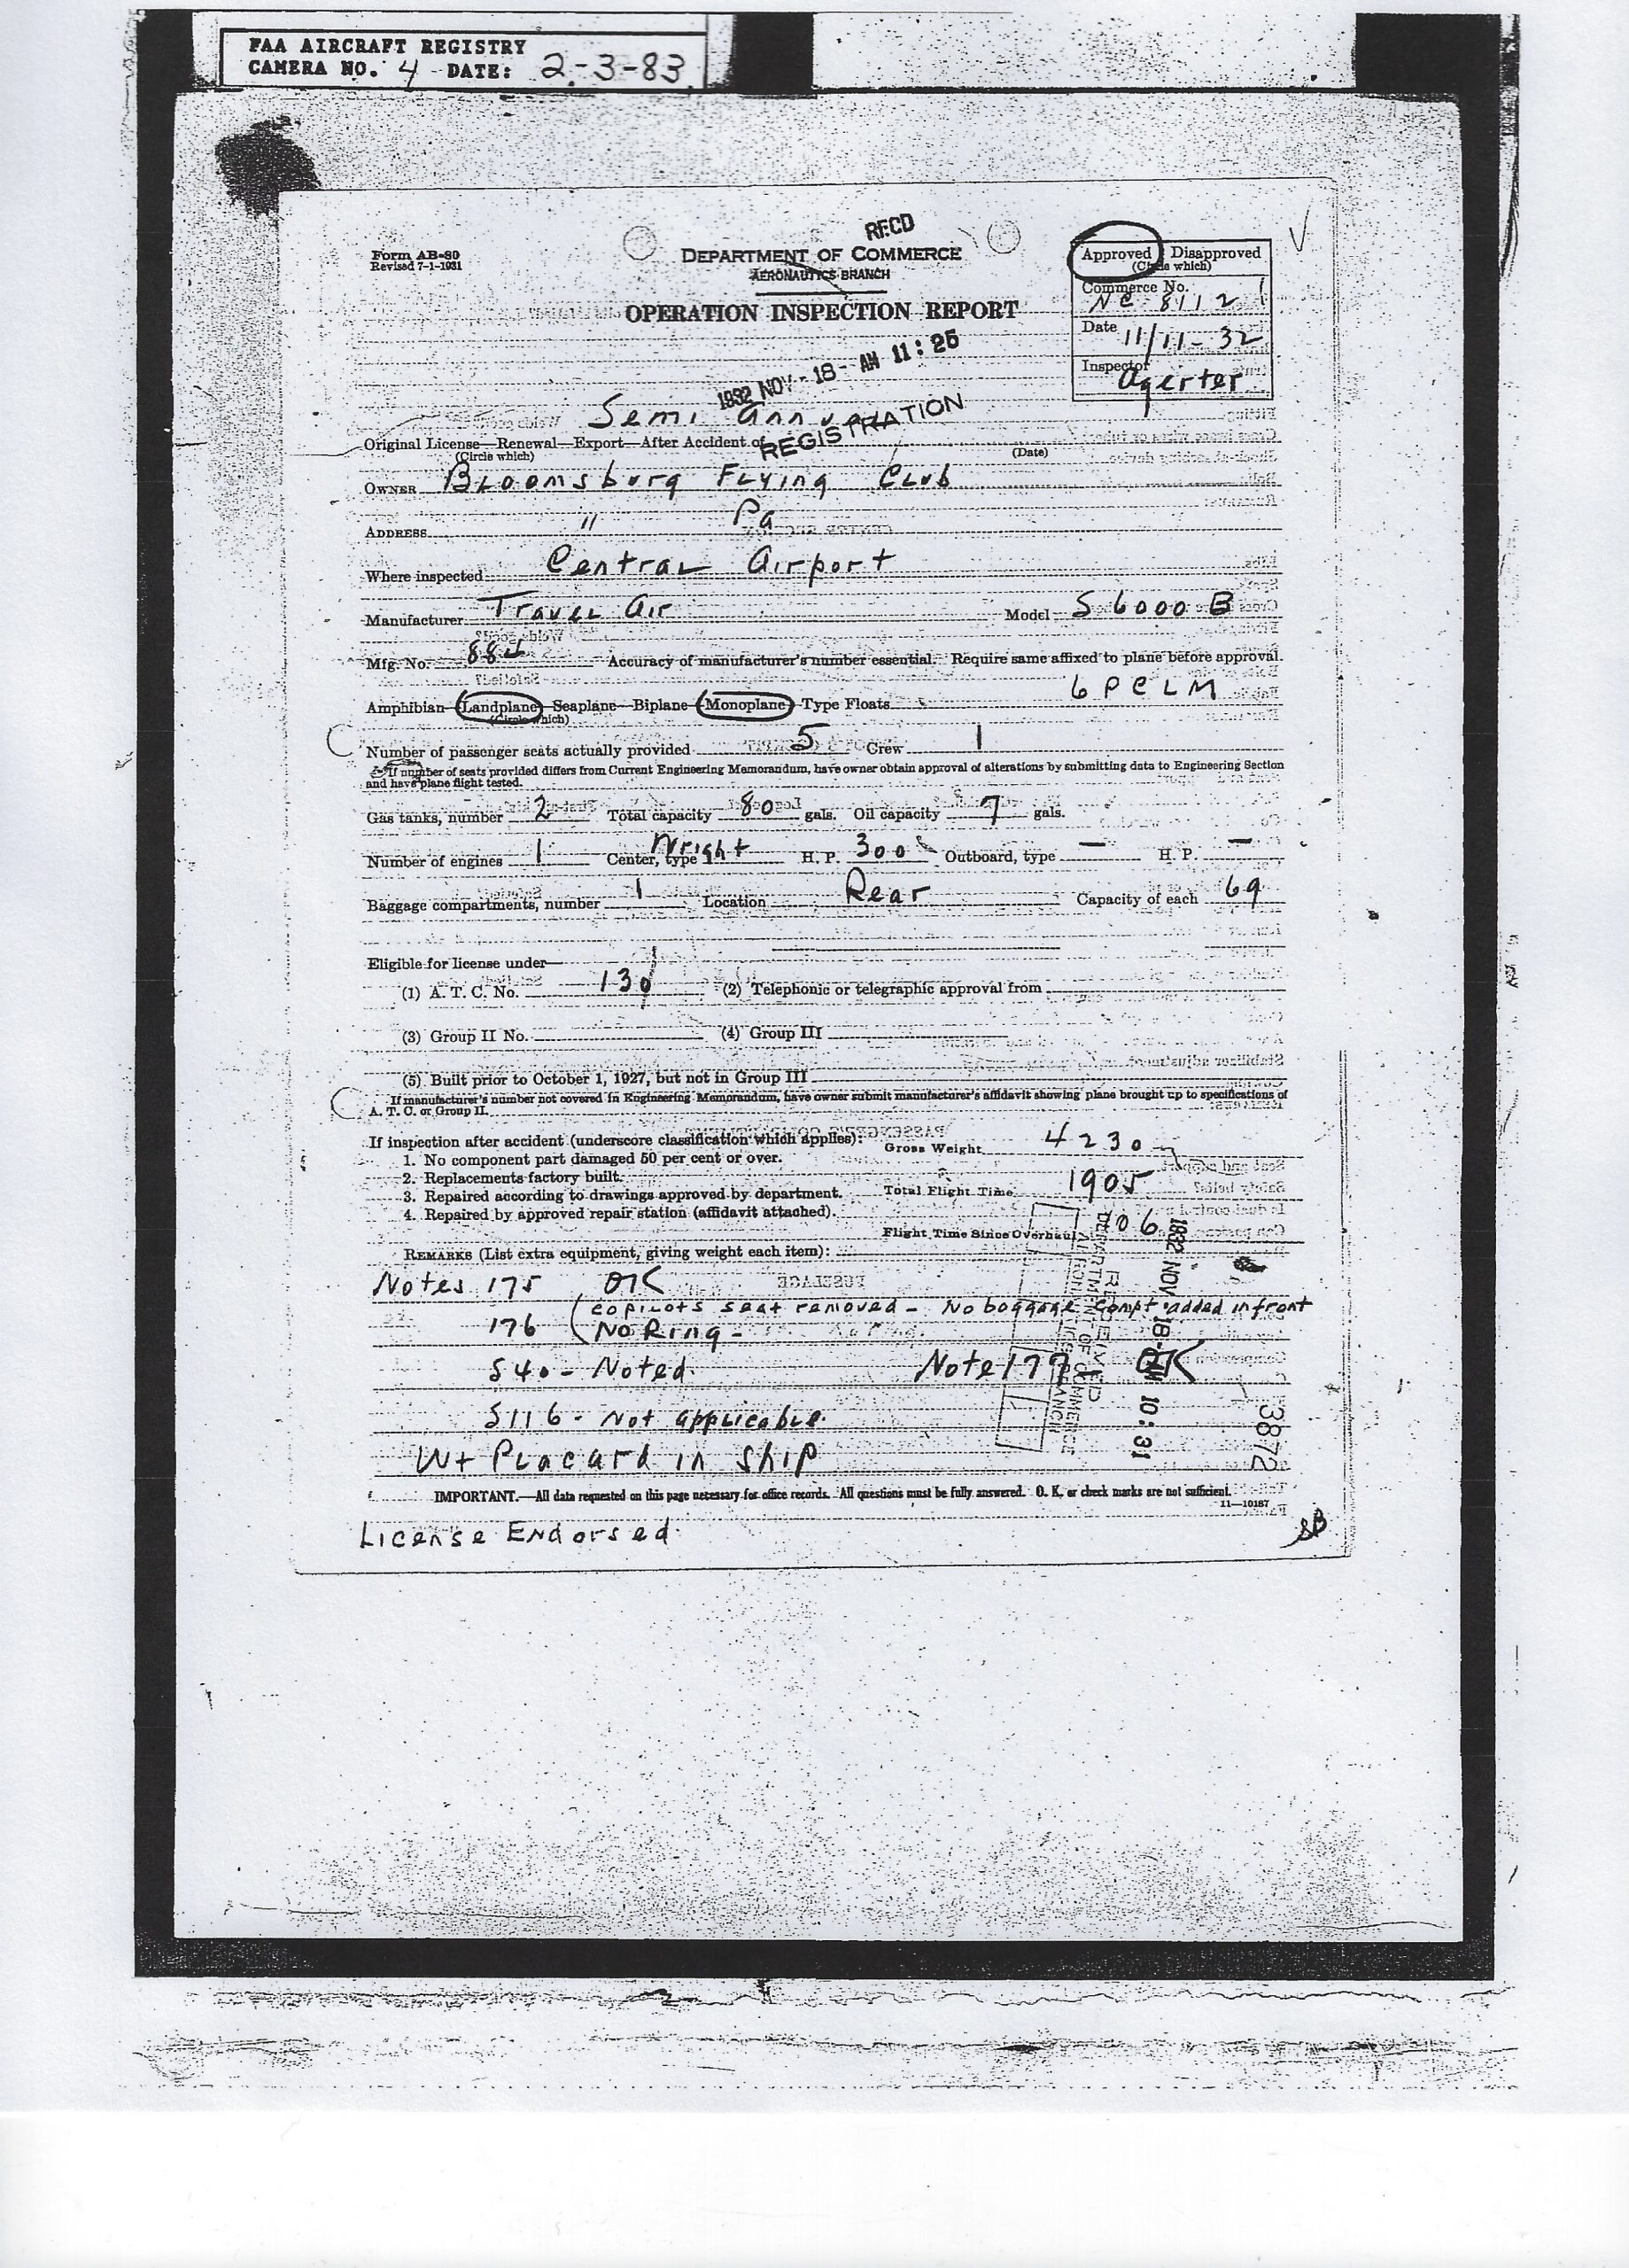 FAA AIRCRAFT REGISTRY
CAMERA NO. 4 DATE: 2-3-83
Form AB-80
Revised 7-1-1931
RECD
DEPARTMENT OF COMMERCE
AERONAUTICS BRANCH
OPERATION INSPECTION REPORT
Approved Disapproved
(Circle which)
Commerce No.
NC-8112
Date 11/11-32
Inspector Agerter
1932 NOV-18- AM 11:25
REGISTRATION
Semi Annual
Original License—Renewal—Export—After Accident of
(Circle which) (Date)
OWNER Bloomsburg Flying Club
ADDRESS " Pa
Where inspected Central Airport
Manufacturer Travel Air Model S 6000 B
Mfg. No. 884 Accuracy of manufacturer's number essential. Require same affixed to plane before approval.
6 PCLM
Amphibian—Landplane—Seaplane—Biplane—Monoplane—Type Floats
(Circle which)
Number of passenger seats actually provided 5 Crew 1
If number of seats provided differs from Current Engineering Memorandum, have owner obtain approval of alterations by submitting data to Engineering Section
and have plane flight tested.
Gas tanks, number 2 Total capacity 80 gals. Oil capacity 7 gals.
Number of engines 1 Center, type Wright H. P. 300 Outboard, type — H. P. —
Baggage compartments, number 1 Location Rear Capacity of each 69
Eligible for license under—
(1) A. T. C. No. 130 (2) Telephonic or telegraphic approval from
(3) Group II No. (4) Group III
(5) Built prior to October 1, 1927, but not in Group III
If manufacturer's number not covered in Engineering Memorandum, have owner submit manufacturer's affidavit showing plane brought up to specifications of
A. T. C. or Group II.
If inspection after accident (underscore classification which applies):
Gross Weight 4230
1. No component part damaged 50 per cent or over.
2. Replacements factory built.
3. Repaired according to drawings approved by department. Total Flight Time 1905
4. Repaired by approved repair station (affidavit attached).
Flight Time Since Overhaul 06
REMARKS (List extra equipment, giving weight each item):
Notes 175 OK
176 (copilots seat removed - No baggage compt added in front
No Ring -
S40 - Noted. Note 177 OK
S116 - Not applicable.
Wt Placard in ship
RECEIVED
DEPARTMENT OF COMMERCE
AERONAUTICS BRANCH
1932 NOV 18 AM 10:31
3872
IMPORTANT.—All data requested on this page necessary for office records. All questions must be fully answered. O. K. or check marks are not sufficient.
11—10187
License Endorsed.
SB